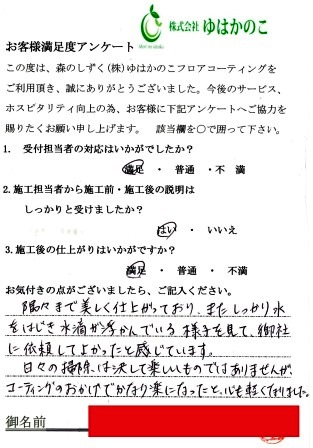 株式会社 ゆはかのこ
お客様満足度アンケート
この度は、森のしずく(株)ゆはかのこフロアコーティングを
ご利用頂き、誠にありがとうございました。今後のサービス、
ホスピタリティ向上の為、お客様に下記アンケートへご協力を
賜りたくお願い申し上げます。 該当欄を○で囲って下さい。
1. 受付担当者の対応はいかがでしたか?
満足 ・ 普通 ・ 不満
2. 施工担当者から施工前・施工後の説明は
しっかりと受けましたか?
はい ・ いいえ
3. 施工後の仕上がりはいかがですか?
満足 ・ 普通 ・ 不満
お気付きの点がございましたら、ご記入ください。
隅々まで美しく仕上がっており、またしっかり水
をはじき水滴が浮かんでいる様子を見て、御社
に依頼してよかったと感じています。
日々の掃除は決して楽しいものではありませんが、
コーティングのおかげでかなり楽になったと、心も軽くなりました。
御名前